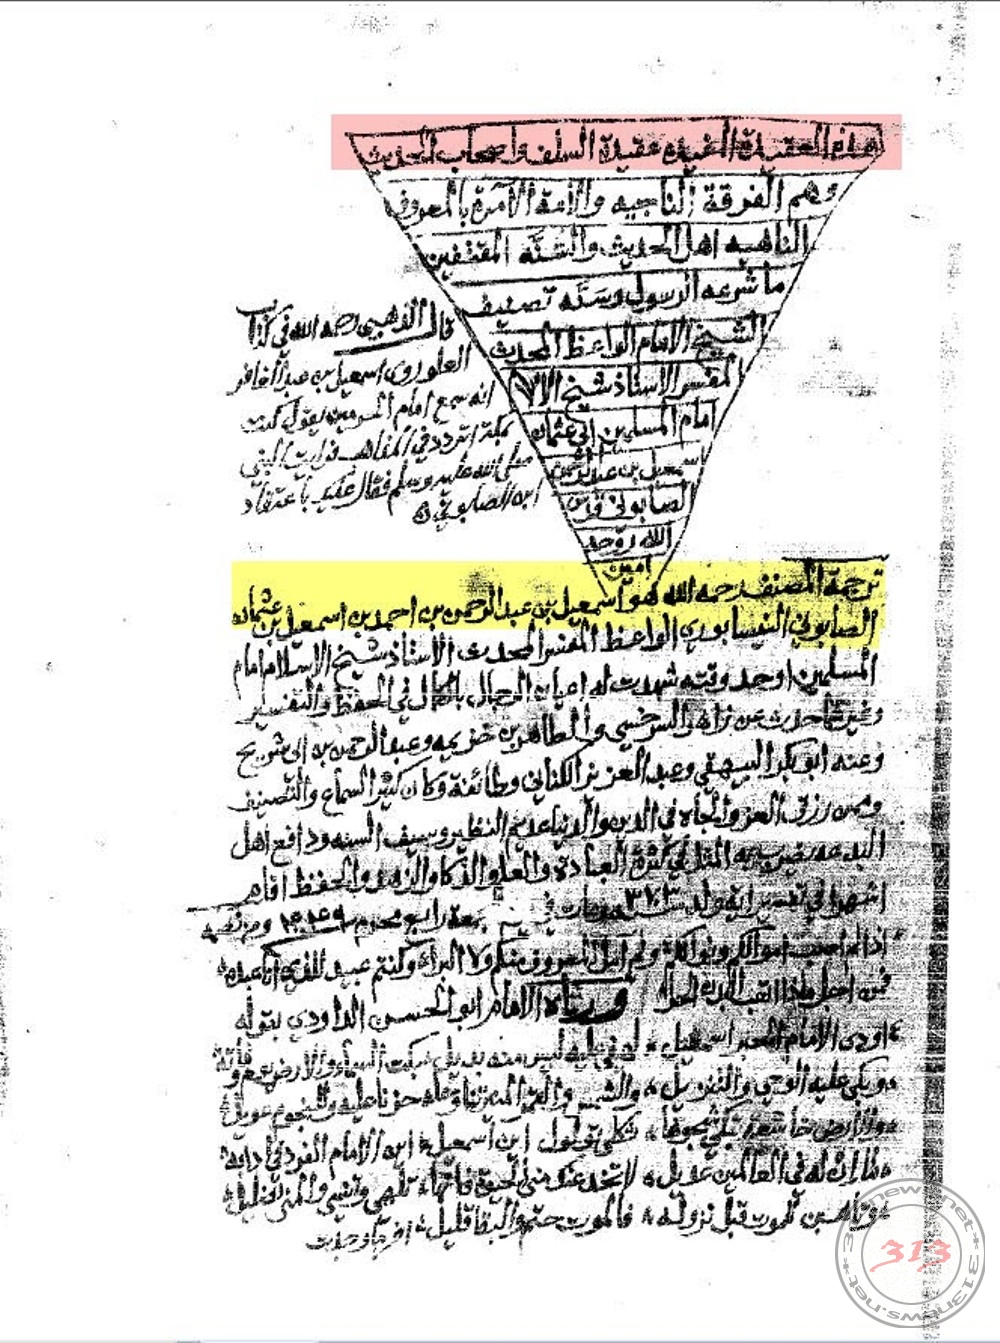 هذه العقيدة المفيده عقيدة السلف واصحاب الحديث
وهم الفرقة الناجيه والامة الآمرة بالمعروف
الناهيه اهل الحديث والسنه المقتفين
ما شرعه الرسول وسنه تصنيف
الشيخ الامام الواعظ المحدث
المفسر الاستاذ شيخ الا
امام المسلمين ابي عثمان
اسمعيل بن عبد الرحمن
الصابوني قدس
الله روحه
امين
قال الذهبي رحمه الله في كتاب
العلو روى اسمعيل بن عبد الغافر
انه سمع امام الحرمين يقول كنت
بمكة اتردد في المذاهب فرايت النبي
صلى الله عليه وسلم فقال عليك باعتقاد
ابن الصابوني
ترجمة المصنف رحمه الله هو اسمعيل بن عبد الرحمن بن احمد بن اسمعيل بن عثمان
الصابوني النيسابوري الواعظ المفسر المحدث الاستاذ شيخ الاسلام امام
المسلمين اوحد وقته شهدت له اعيان الرجال بالكمال في الحفظ والتفسير
وغيرهما حدث عن زاهر السرخسي والطاهر بن خزيمه وعبد الرحمن بن ابي شريح
وعنه ابو بكر البيهقي وعبد العزيز الكتاني وطائفة وكان كثير السماع والتصنيف
وممن رزق العز والجاه في الدين والدنيا عديم النظير وسيف السنه ودافع اهل
البدعه يضرب به المثل في كثرة العبادة والعلم والذكا والزهد والحفظ اقام
اشهرا في تفسير اية ولد سنة ٣٧٣ ومات في يوم رابع محرم
اذا لم اصب اموالكم ونوالكم ولم آمل المعروف منكم ولا البرا وكنتم عبيد للذي انا عبده
فمن اجل ماذا اتعب البدن الحرا ورثاه الامام ابو الحسن الداودي بقوله
اودى الامام الحبر اسمعيل لهفي عليه ليس منه بديل بكت السماء والارض يوم وفاته
وبكى عليه الوحي والتنزيل والشمس والقمر المنير تناوحا حزنا عليه وللنجوم عويل
والارض خاشعة تبكي شجوها ثكلى تولول اين اسمعيل اين الامام الفرد في ادابه
ما ان له في العالمين عديل لا تخدعنك منى الحيوة فانها تلهي وتنسي والمنى تضليل
وتأهبن للموت قبل نزوله فالموت حتم والبقا قليل
313news.net
313